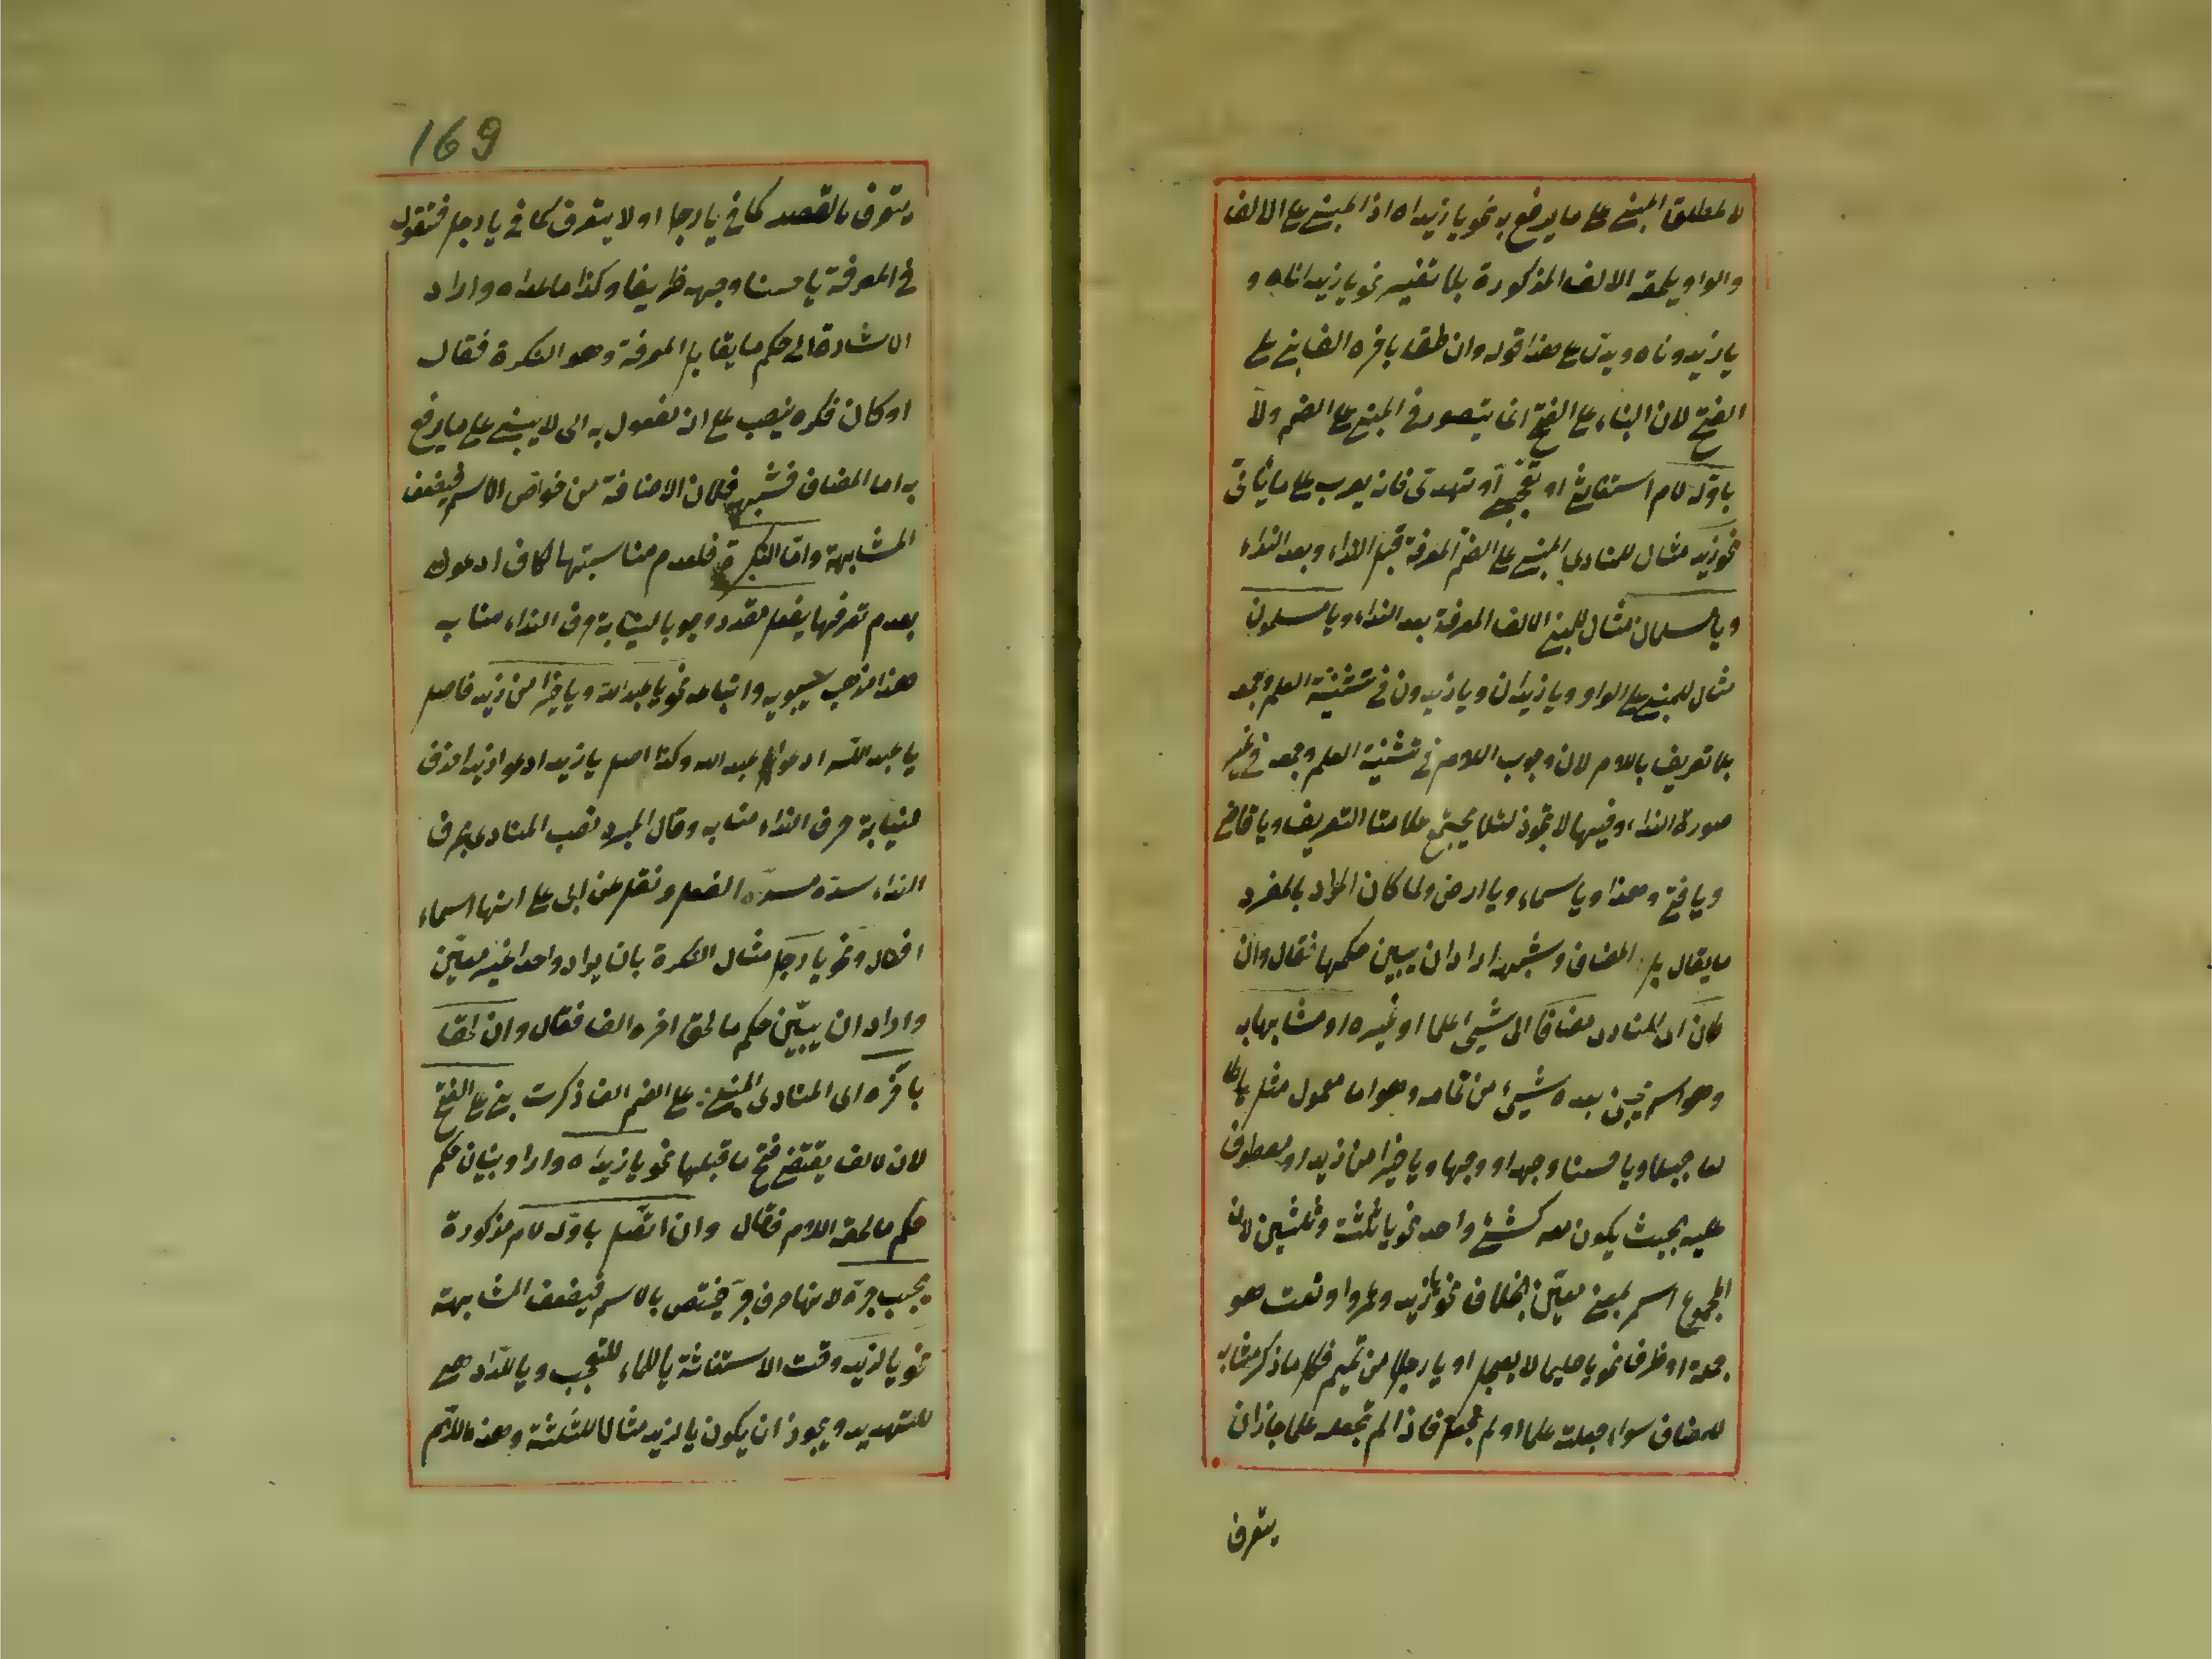 لا لمطلق المبني على ما يرفع به نحو يا زيداه اذ المبني على الالف
والواو يلحقه الالف المذكورة بلا تغيير نحو يا زيداناه و
يا زيدوناه ويدل على هذا قوله وان لحقا باخره الف بني على
الفتح لان البناء على الفتح انما يتصور في المبني على الضم ولا
باوله لام استغاثة او تعجب او تهدى فانه يعرب على ما يأتي
نحو زيد مثال للمنادى المبني على الضم المعرفة قبل النداء وبعد النداء
ويا مسلمان مثال للمبني الالف المعرفة بعد النداء ويا مسلمون
مثال للمبني على الواو ويا زيدان ويا زيدون في تثنية العلم وجمعه
بلا تعريف باللام لان وجوب اللام في تثنية العلم وجمعه في غير
صورة النداء وفيها لا تجوز لئلا يجتمع علامتا التعريف ويا قاضي
ويا فتى وهذا ويا سماء ويا ارض ولما كان المراد بالمفرد
ما يقابل المضاف وشبهه اراد ان يبين حكمها فقال وان
كان اى المنادى مضافا الى شيئ علما او غيره او مشابها به
وهو اسم يجيئ بعده شيئ من تمامه وهو اما معمول مثل يا طا
لعا جبلا ويا حسنا وجهه او وجها ويا خيرا من زيد او معطوف
عليه بحيث يكون معه كشئ واحد نحو يا ثلثة وثلثين لان
المجموع اسم لمعنى معين بخلاف نحو يا زيد وعمروا ونعت هو
جملة او ظرف نحو يا حليما لا يعجل او يا رجلا من تميم فكل ما ذكر مشابه
للمضاف سواء جعلت علما او لم تجعل فاذا لم تجعله علما جاز ان
يتعرف
169
يتعرف بالقصد كما في يا رجل او لا يتعرف كما في يا رجلا فتقول
في المعرفة يا حسنا وجهه ظريفا وكذا ما عداه واراد
الاشارة الى حكم ما يقابل المعرفة وهو النكرة فقال
او كان نكره ينصب على انه مفعول به اى لا يبنى على ما يرفع
به اما المضاف فشبهه فلان الاضافة من خواص الاسم فيضعف
المشابهة واما النكرة فلعدم مناسبتها كاف ادعوك
بعدم تعرفها بفعل مقدر وجوبا لنيابة حرف النداء منابه
هذا مذهب سيبويه واتباعه نحو يا عبدالله ويا خيرا من زيد فاصل
يا عبد الله ادعوا عبد الله وكذا اصل يا زيد ادعو زيدا حذف
لنيابة حرف النداء منابه وقال المبرد نصب المنادى بحرف
النداء سده مسده الفعل ونقل عن ابى على انها اسماء
افعال ونحو يا رجلا مثال النكرة بان يراد واحدا غير معين
واراد ان يبين حكم ما لحق اخره الف فقال وان لحقا
باخره اى المنادى المبنى على الضم الف ذكرت بني على الفتح
لان لالف يقتضي فتح ما قبلها نحو يا زيداه واراد بيان حكم
حكم ما لحقه اللام فقال وان اتصل باوله لام مذكورة
يجب جره لانها حرف جر يختص بالاسم فيضعف المشابهة
نحو يا لزيد وقت الاستغاثة يا للماء للتعجب ويا للدّاد هي
للتهديد ويجوز ان يكون يا لزيد مثالا للثلثة وهذه اللام